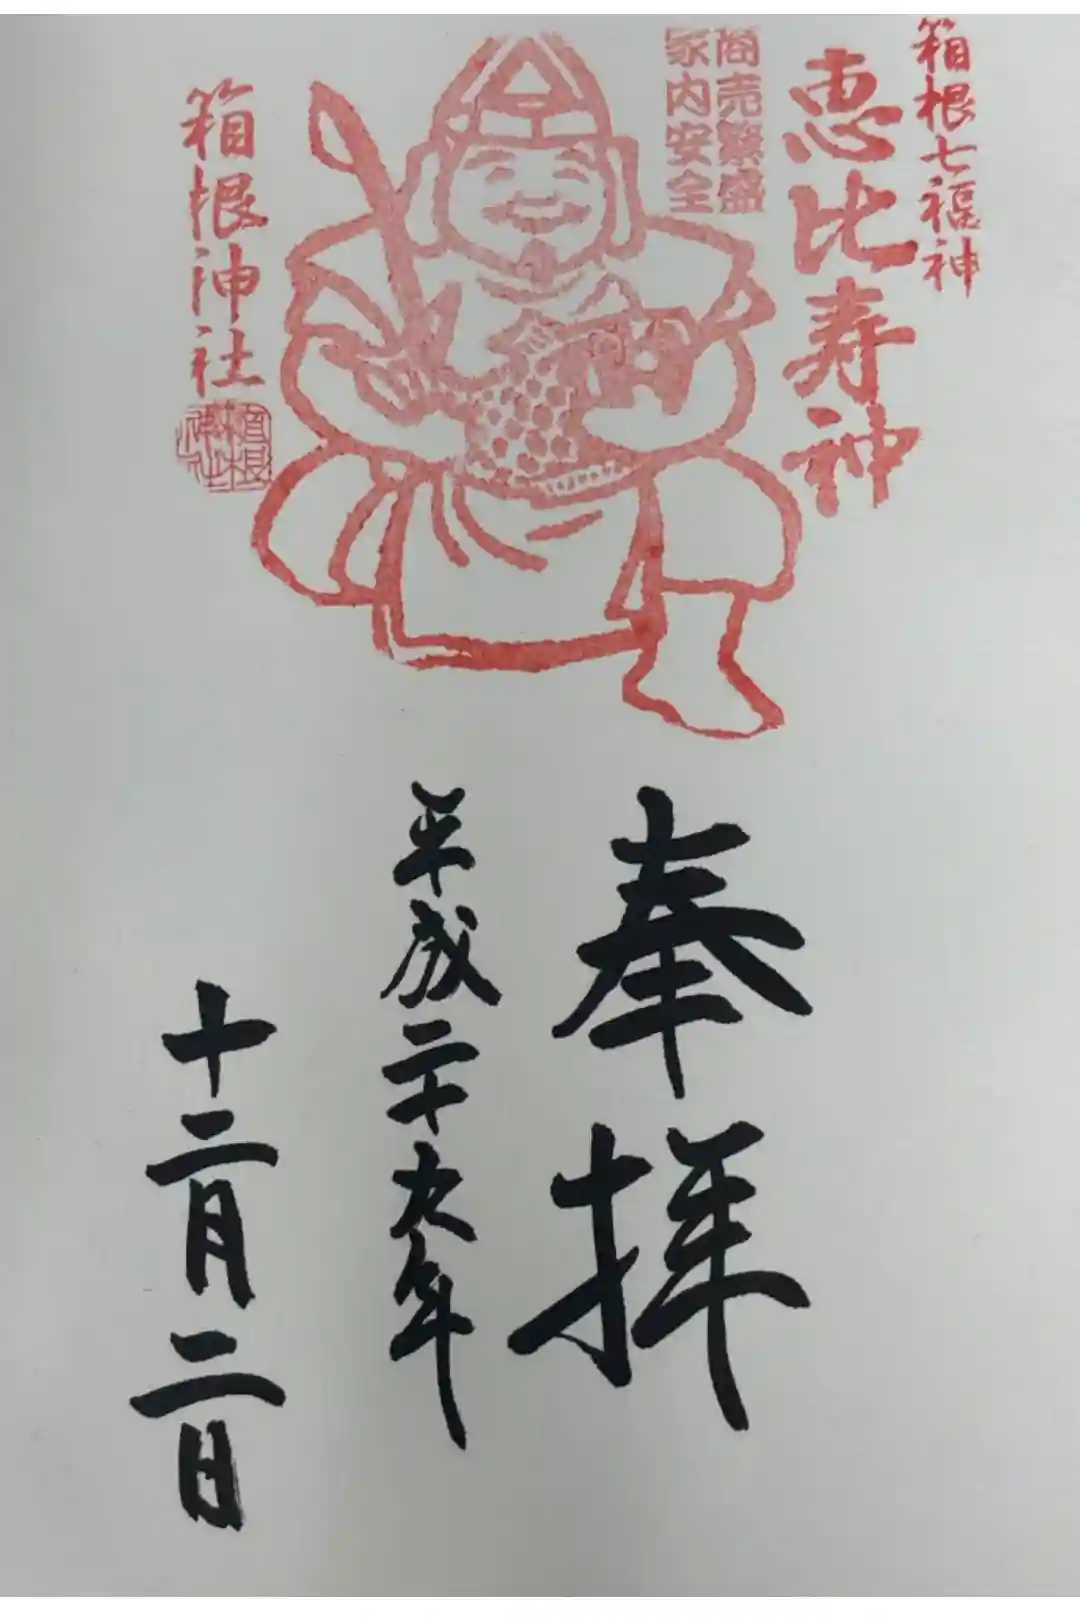 箱根七福神
恵比寿神
商売繁盛
家内安全
箱根神社
箱根
神社
奉拝
平成二十九年
十二月二日